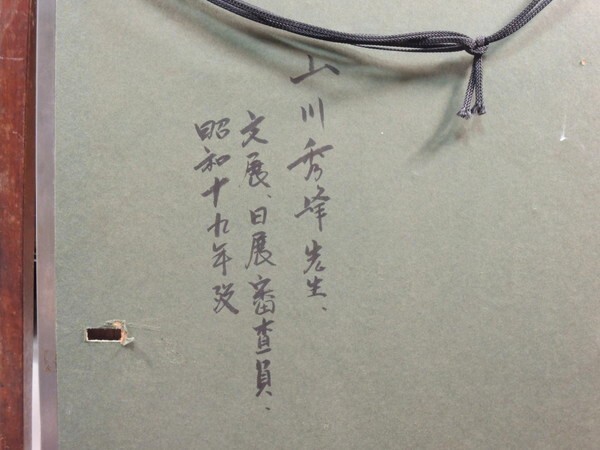 山川秀峰先生、
文展、日展審査員、
昭和十九年歿